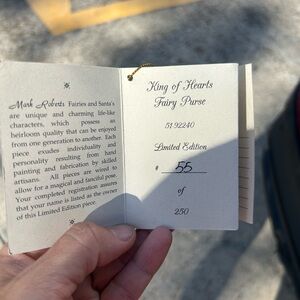 Mark Roberts Fairies and Santa's
are unique and charming life-like
characters, which possess an
heirloom quality that can be enjoyed
from one generation to another. Each
piece exudes individuality and
personality resulting from hand
painting and fabrication by skilled
artisans. All pieces are wired to
allow for a magical and fanciful pose.
Your completed registration assures
that your name is listed as the owner
of this Limited Edition piece.
King of Hearts
Fairy Purse
51-92240
Limited Edition
# 55
of
250